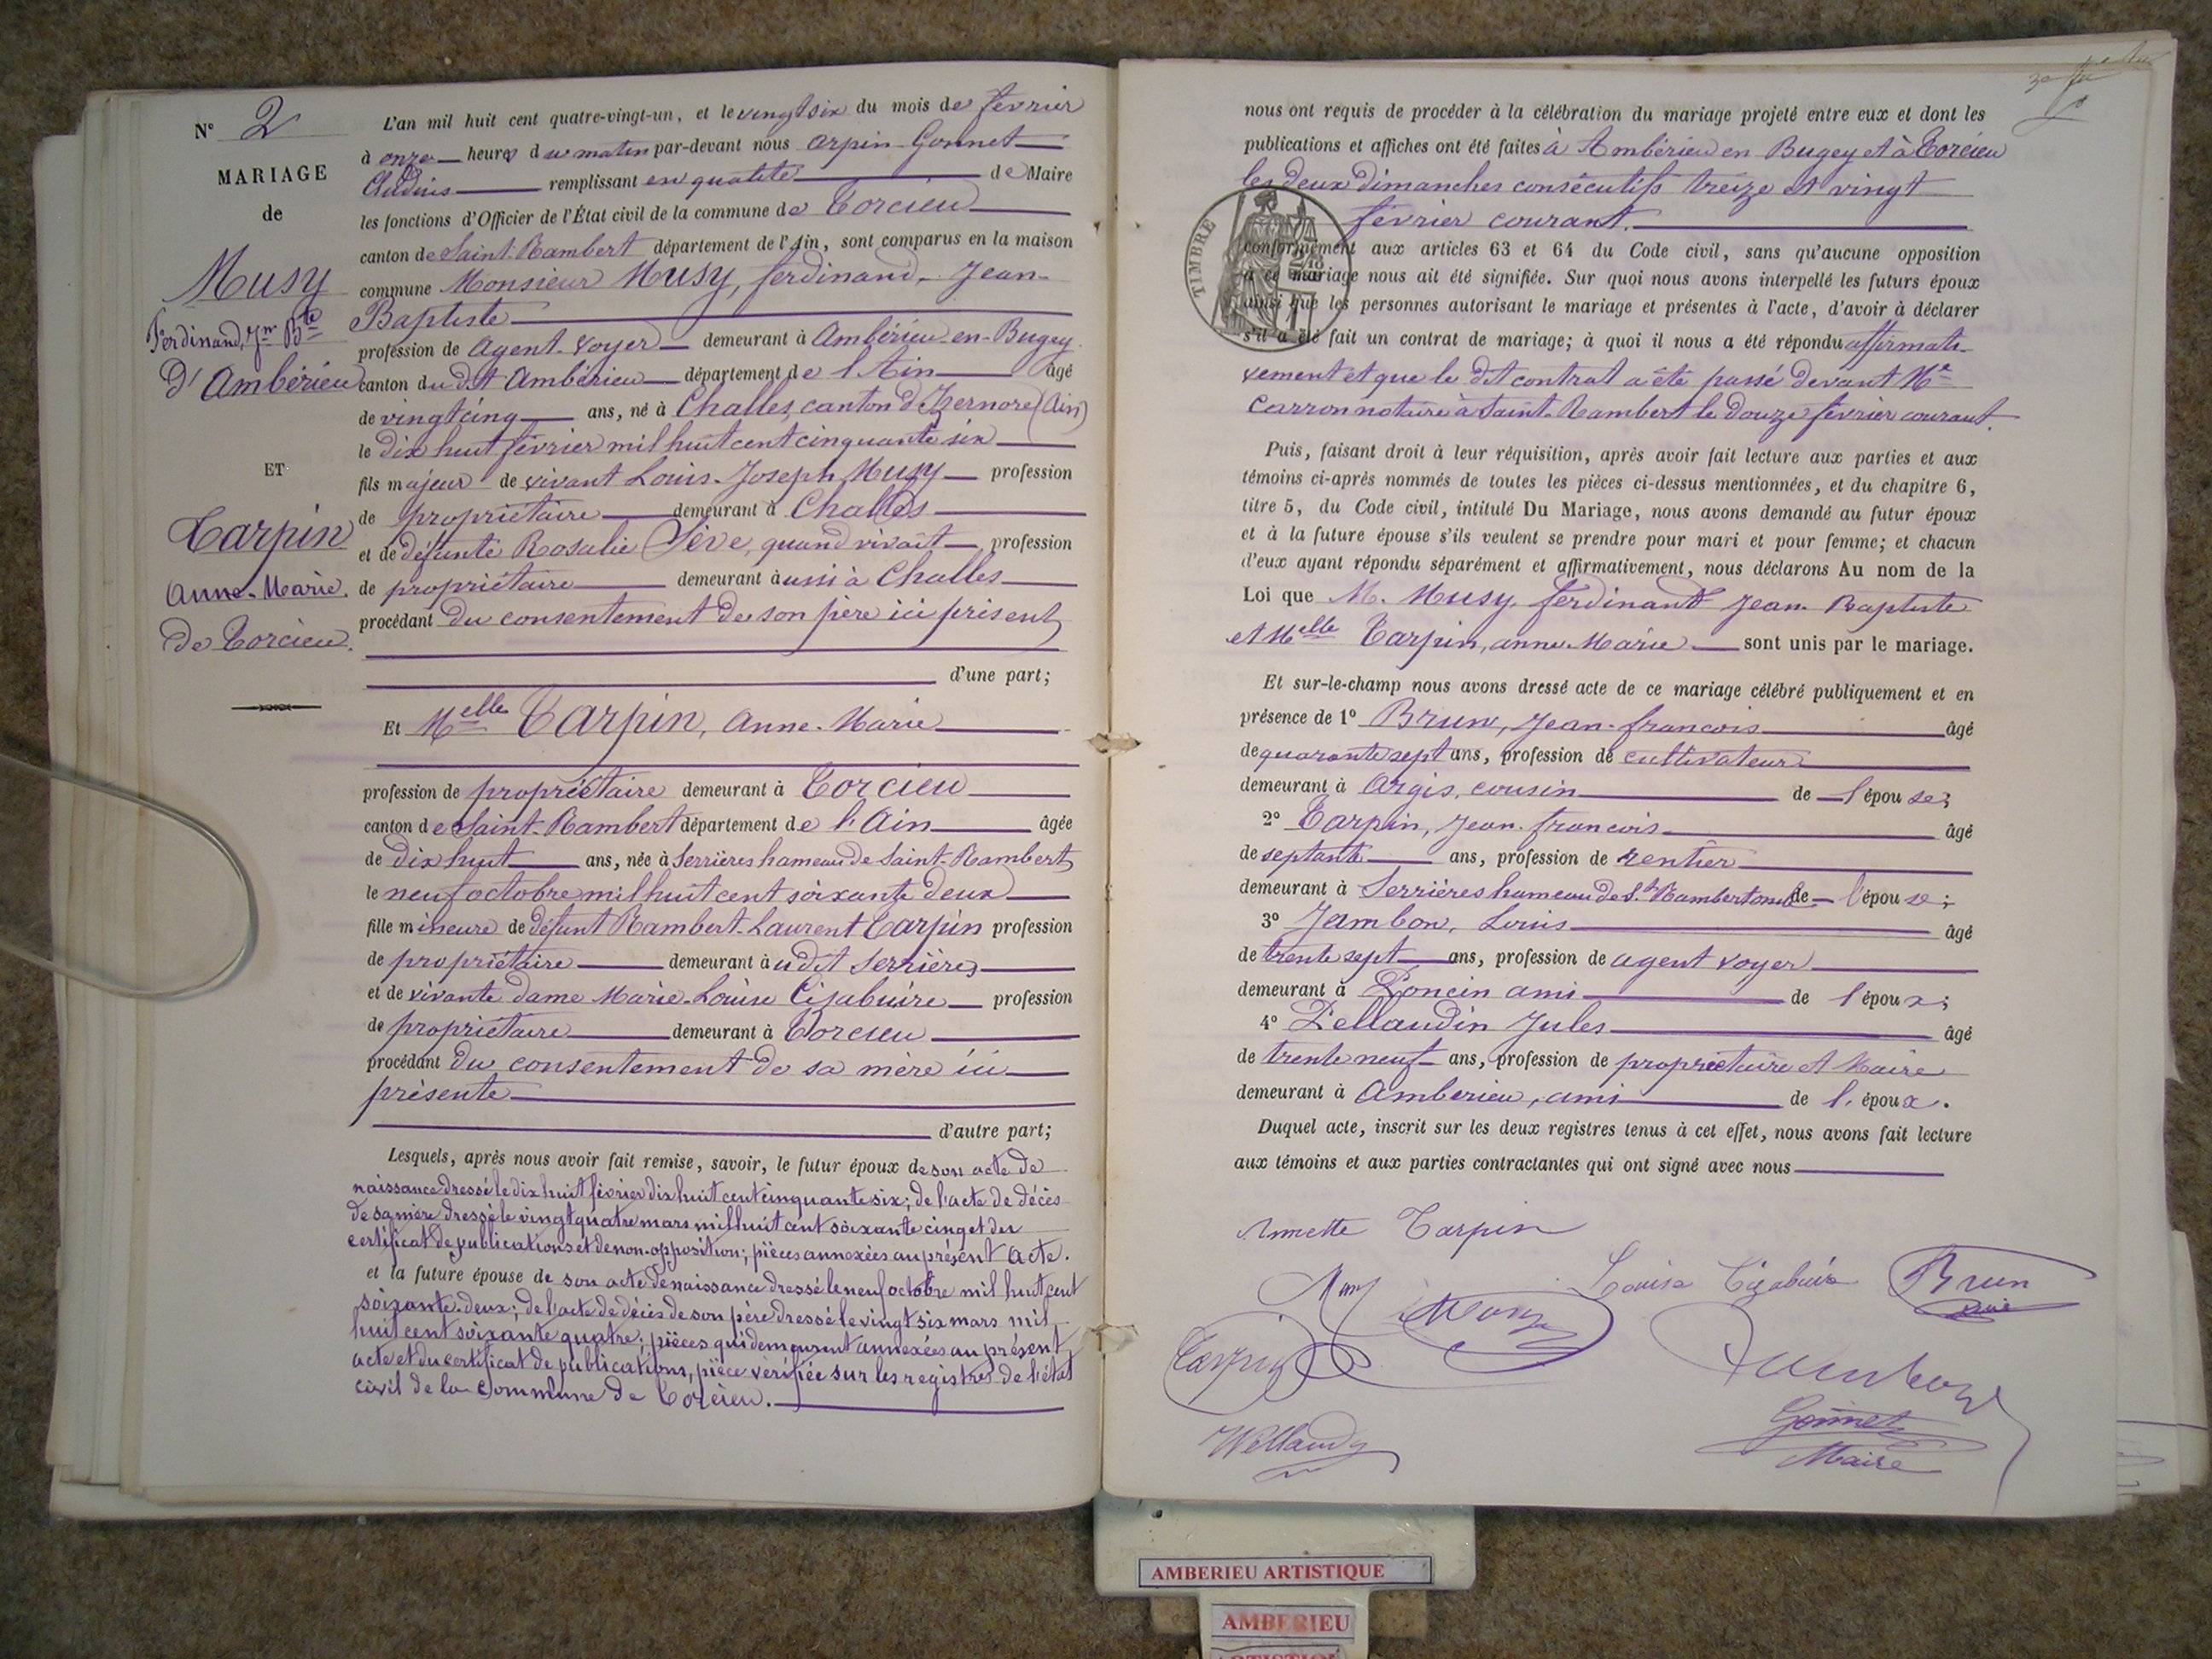 N° 2
MARIAGE
de
Musy
Ferdinand, Jn Bte
d'Ambérieu
ET
Tarpin
Anne-Marie.
de Torcieu.
L'an mil huit cent quatre-vingt-un, et le vingt six du mois de février
à onze heures du matin par-devant nous Arpin-Gonnet
Cludius remplissant en qualité de Maire
les fonctions d'Officier de l'État civil de la commune de Torcieu
canton de Saint-Rambert département de l'Ain, sont comparus en la maison
commune Monsieur Musy, ferdinand, Jean-
Baptiste
profession de Agent-Voyer demeurant à Ambérieu-en-Bugey
canton du dit Ambérieu département de l'Ain âgé
de vingt cinq ans, né à Challes, canton d'Izernore (Ain)
le dix huit février mil huit cent cinquante six
fils majeur de vivant Louis-Joseph Musy profession
de propriétaire demeurant à Challes
et de défunte Rosalie Sève, quand vivait profession
de propriétaire demeurant aussi à Challes
procédant du consentement de son père ici présent
d'une part;
Et Melle Tarpin, Anne-Marie
profession de propriétaire demeurant à Torcieu
canton de Saint-Rambert département de l'Ain âgée
de dix huit ans, née à Serrières hameau de Saint-Rambert
le neuf octobre mil huit cent soixante deux
fille mineure de défunt Rambert-Laurent Tarpin profession
de propriétaire demeurant audit Serrières
et de vivante dame Marie-Louise Tizabuire profession
de propriétaire demeurant à Torcieu
procédant du consentement de sa mère ici
présente
d'autre part;
Lesquels, après nous avoir fait remise, savoir, le futur époux de son acte de
naissance dressé le dix huit février dix huit cent cinquante six; de l'acte de décès
de sa mère dressé le vingt quatre mars mil huit cent soixante cinq et du
certificat de publications et de non-opposition; pièces annexées au présent acte.
et la future épouse de son acte de naissance dressé le neuf octobre mil huit cent
soixante-deux; de l'acte de décès de son père dressé le vingt six mars mil
huit cent soixante quatre; pièces qui demeurent annexées au présent
acte et du certificat de publications, pièce vérifiée sur les registres de l'état
civil de la commune de Torcieu.
nous ont requis de procéder à la célébration du mariage projeté entre eux et dont les
publications et affiches ont été faites à Ambérieu en Bugey et à Torcieu
les deux dimanches consécutifs treize et vingt
février courant.
TIMBRE
conformément aux articles 63 et 64 du Code civil, sans qu'aucune opposition
à ce mariage nous ait été signifiée. Sur quoi nous avons interpellé les futurs époux
ainsi que les personnes autorisant le mariage et présentes à l'acte, d'avoir à déclarer
s'il a été fait un contrat de mariage; à quoi il nous a été répondu affirmati-
vement et que le dit contrat a été passé devant Me
Carron notaire à Saint-Rambert le douze février courant.
Puis, faisant droit à leur réquisition, après avoir fait lecture aux parties et aux
témoins ci-après nommés de toutes les pièces ci-dessus mentionnées, et du chapitre 6,
titre 5, du Code civil, intitulé Du Mariage, nous avons demandé au futur époux
et à la future épouse s'ils veulent se prendre pour mari et pour femme; et chacun
d'eux ayant répondu séparément et affirmativement, nous déclarons Au nom de la
Loi que M. Musy, ferdinand Jean-Baptiste
et Melle Tarpin, anne-Marie sont unis par le mariage.
Et sur-le-champ nous avons dressé acte de ce mariage célébré publiquement et en
présence de 1° Brun, Jean-francois âgé
de quarante sept ans, profession de cultivateur
demeurant à Argis, cousin de l'épouse;
2° Tarpin, Jean-francois âgé
de septante ans, profession de rentier
demeurant à Serrières hameau de St Rambert oncle de l'épouse;
3° Jambon, Louis âgé
de trente sept ans, profession de agent voyer
demeurant à Poncin ami de l'époux;
4° Pellaudin Jules âgé
de trente neuf ans, profession de propriétaire et Maire
demeurant à Ambérieu, ami de l'époux.
Duquel acte, inscrit sur les deux registres tenus à cet effet, nous avons fait lecture
aux témoins et aux parties contractantes qui ont signé avec nous
Annette Tarpin
Louise Tizabuire Brun
Musy Musy
Tarpin Jambon
Gonnet
Maire
AMBERIEU ARTISTIQUE
AMBERIEU
ARTISTIQUE